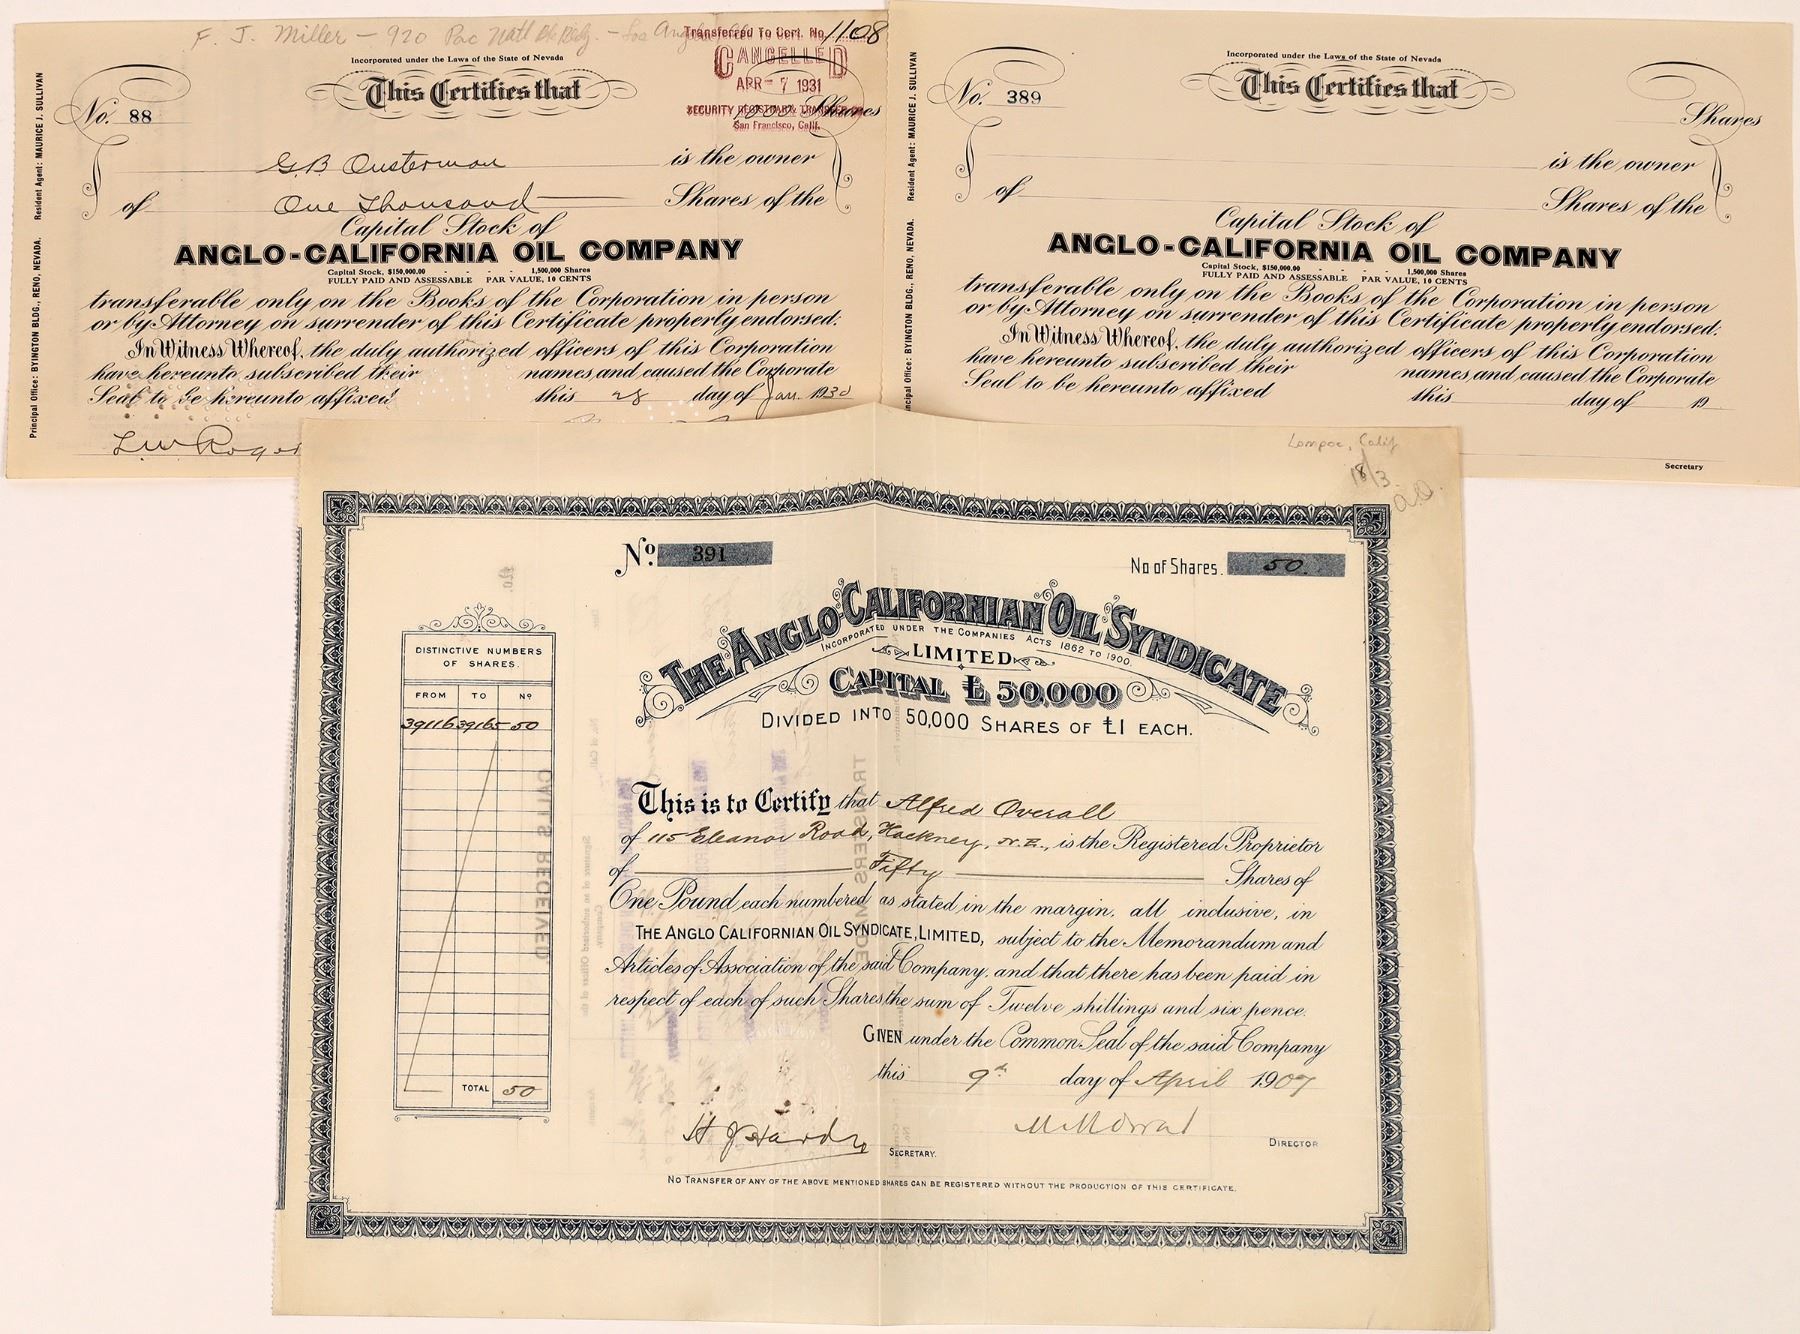 F. J. Miller - 920 Pac Natl Bk Bldg. - Los Angeles
Transferred To Cert. No. 1108
CANCELLED
APR - 7 1931
SECURITY REGISTRAR & TRANSFER
San Francisco, Calif.
Incorporated under the Laws of the State of Nevada
This Certifies that
No. 88
1000 Shares
G.B. Ousterman is the owner
of One Thousand Shares of the
Capital Stock of
ANGLO-CALIFORNIA OIL COMPANY
Capital Stock, $150,000.00 - - - 1,500,000 Shares
FULLY PAID AND ASSESSABLE PAR VALUE, 10 CENTS
transferable only on the Books of the Corporation in person
or by Attorney on surrender of this Certificate properly endorsed.
In Witness Whereof, the duly authorized officers of this Corporation
have hereunto subscribed their names, and caused the Corporate
Seal to be hereunto affixed this 28 day of Jan. 1930
L W Roger
Principal Office: BYINGTON BLDG., RENO, NEVADA. Resident Agent: MAURICE J. SULLIVAN
Incorporated under the Laws of the State of Nevada
This Certifies that
No. 389
Shares
is the owner
of Shares of the
Capital Stock of
ANGLO-CALIFORNIA OIL COMPANY
Capital Stock, $150,000.00 - - - 1,500,000 Shares
FULLY PAID AND ASSESSABLE PAR VALUE, 10 CENTS
transferable only on the Books of the Corporation in person
or by Attorney on surrender of this Certificate properly endorsed.
In Witness Whereof, the duly authorized officers of this Corporation
have hereunto subscribed their names, and caused the Corporate
Seal to be hereunto affixed this day of 19
Secretary
ncipal Office: BYINGTON BLDG., RENO, NEVADA. Resident Agent: MAURICE J. SULLIVAN
Lompoc, Calif
18/3.
No. 391
No of Shares. 50.
THE ANGLO-CALIFORNIAN OIL SYNDICATE
INCORPORATED UNDER THE COMPANIES ACTS 1862 TO 1900.
LIMITED
CAPITAL £ 50,000
DIVIDED INTO 50,000 SHARES OF £1 EACH.
DISTINCTIVE NUMBERS
OF SHARES.
FROM TO No
39116 39165 50
TOTAL 50
This is to Certify that Alfred Overall
of 115 Eleanor Road, Hackney, N.E., is the Registered Proprietor
of Fifty Shares of
One Pound each numbered as stated in the margin, all inclusive, in
THE ANGLO CALIFORNIAN OIL SYNDICATE, LIMITED, subject to the Memorandum and
Articles of Association of the said Company, and that there has been paid in
respect of each of such Shares the sum of Twelve shillings and six pence.
GIVEN under the Common Seal of the said Company
this 9th day of April 1907
H J Hardy
SECRETARY.
DIRECTOR
NO TRANSFER OF ANY OF THE ABOVE MENTIONED SHARES CAN BE REGISTERED WITHOUT THE PRODUCTION OF THIS CERTIFICATE.
CALLS RECEIVED
TRANSFERS MADE